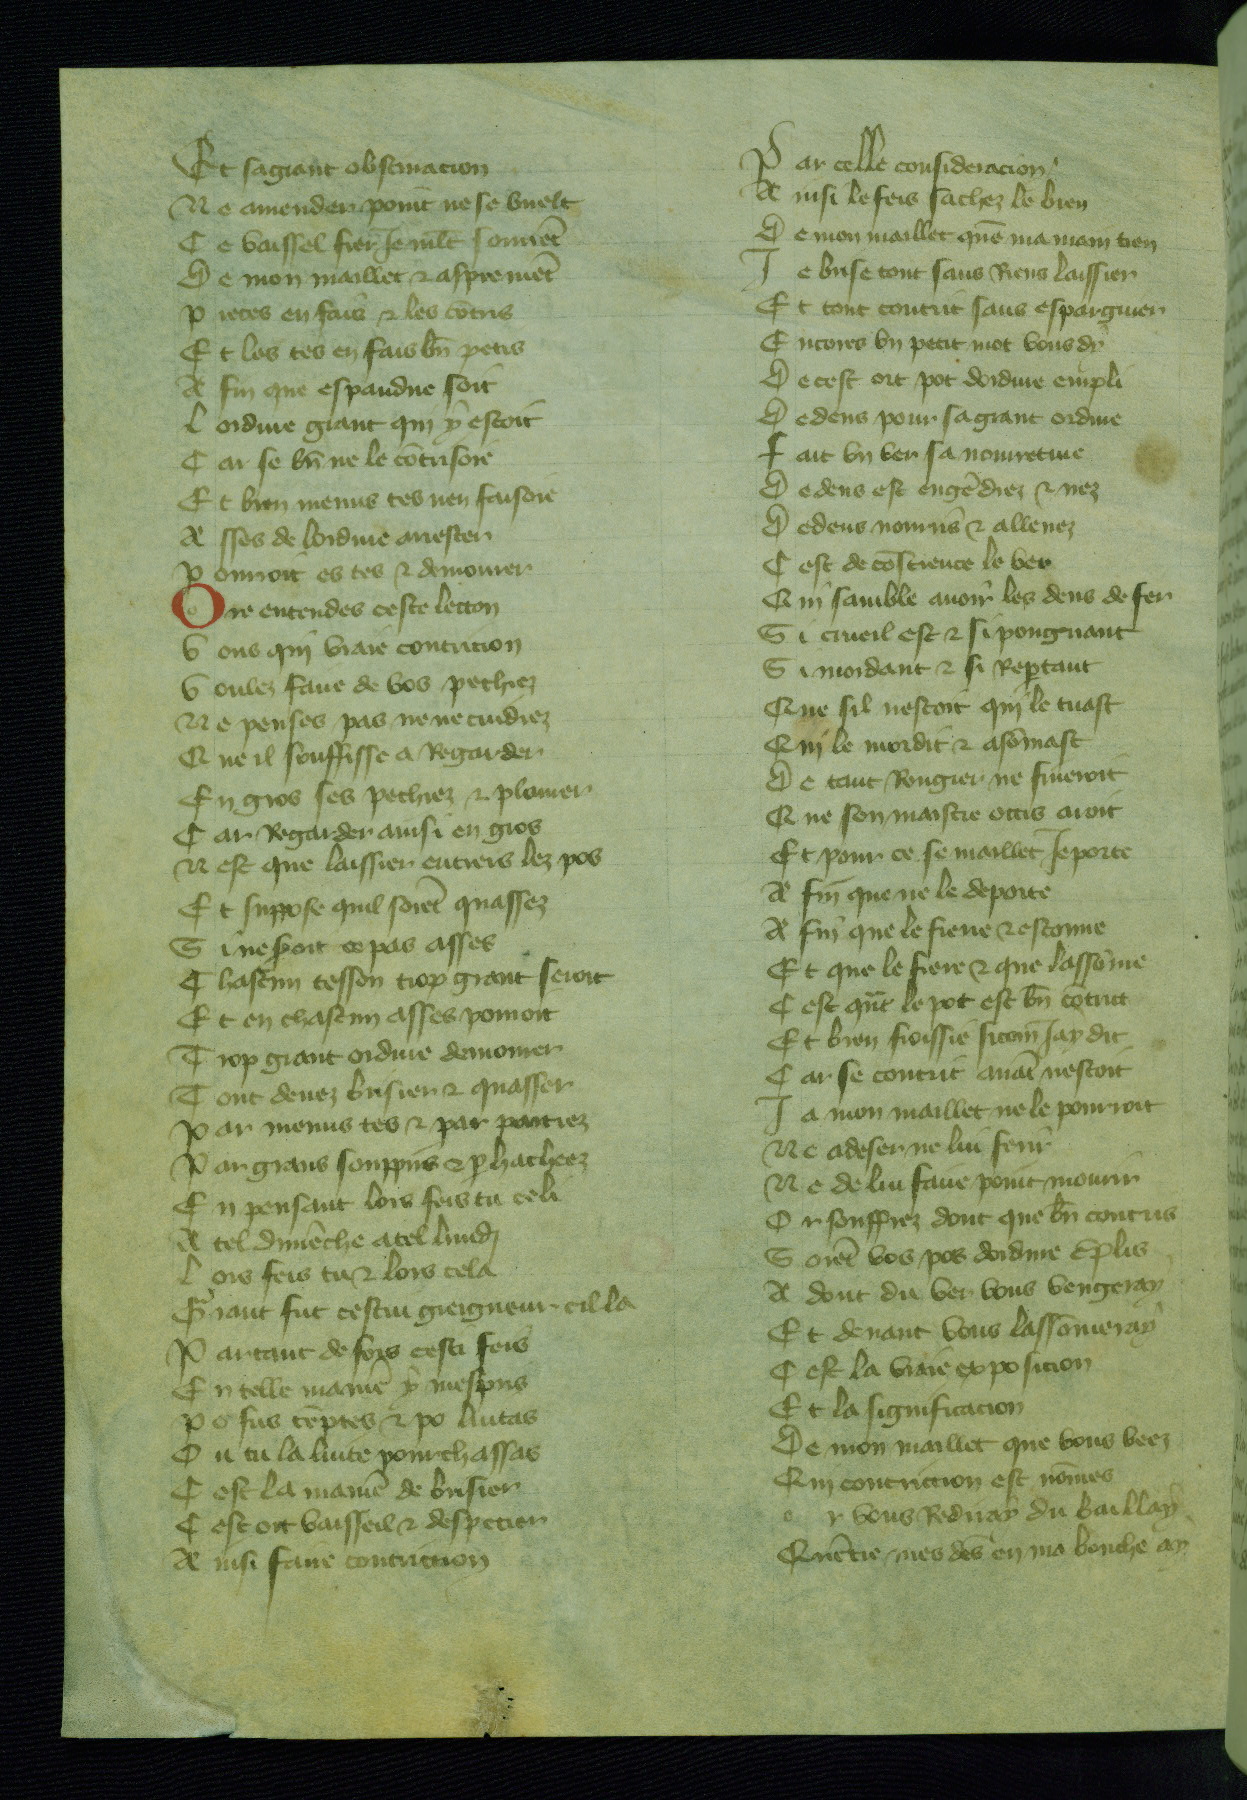 Et sa grant obstinacion
Ne amender point ne se vuelt
Ce vaissel fier Je mlt souuēt
De mon maillet ⁊ aspremēt
Pieces en fais ⁊ les cōtris
Et les tes en fais bn̄ petis
A fin que espandue soit
L ordure grant qui y estoit
Car se bn̄ ne le cōtrisoie
Et bien menus tes nen faisoie
Asses de lordure arrester
Pourroit es tes ⁊ demourer
Ore entendes ceste lecon
Vous qui vraie contricion
Voulez faire de vos pechiez
Ne penses pas ne ne cuidiez
Que il souffisse a Regarder
En gros ses pechiez ⁊ plourer
Car Regarder ainsi en gros
Nest que laissier entiers lez pos
Et suppose quil soiēt quassez
Si ne seroit ce pas asses
Chascun tesson trop grant seroit
Et en chascun asses pourroit
Trop grant ordure demourer
Tout deuez brisier ⁊ quasser
Par menus tes ⁊ par partiez
Par grans souppirs ⁊ p hacheez
En pensant lors feis tu celi
A tel dimēche a tel lundi
Lors feis tu ⁊ lors cela
Grant fut cestui greigneur cil la
Par tant de fois cesti feis
En telle maniē y mespris
Po fus tēptes ⁊ po luitas
Ou tu la luite pourchassas
Cest la maniē de brisier
Cest ort vaisseil ⁊ despecier
Ainsi faire contriction
Par celle consideracion
Ainsi le feis sachez le bien
De mon maillet quē ma main tien
Je brise tout sans Riens laissier
Et tout contrit sans espargnier
Encores vn petit mot vous dy
De cest ort pot dordure empli
Dedens pour sa grant ordure
Fait vn ver sa nourreture
Dedens est engēdrez ⁊ nez
Dedens nourris ⁊ alleuez
Cest de cōscience le ver
Qui samble auoir les dens de fer
Si crueil est ⁊ si pongnant
Si mordant ⁊ si Repētant
Que sil nestoit qui le tuast
Qui le mordit ⁊ asōmast
De tant Rougier ne fineroit
Que son maistre occis aroit
Et pour ce se maillet Je porte
A fin que ne le deporte
A fin que le fiere ⁊ estonne
Et que le fiere ⁊ que lassōme
Cest qn̄t le pot est bn̄ cōtrit
Et bien froissie sicom Jay dit
Car se contrit auāt nestoit
Ja mon maillet ne le pourroit
Ne adeser ne lui ferir
Ne de lui faire point mourir
Or souffrez dont que bn̄ contris
Soiēt vos pos dordure emplis
A dont du ver vous vengeray
Et deuant vous lassōmeray
Cest la vraie exposicion
Et la significacion
De mon maillet que vous veez
Qui contriction est nōmes
or vous Rediray du baillay
Quē mes dēs en ma bouche ay